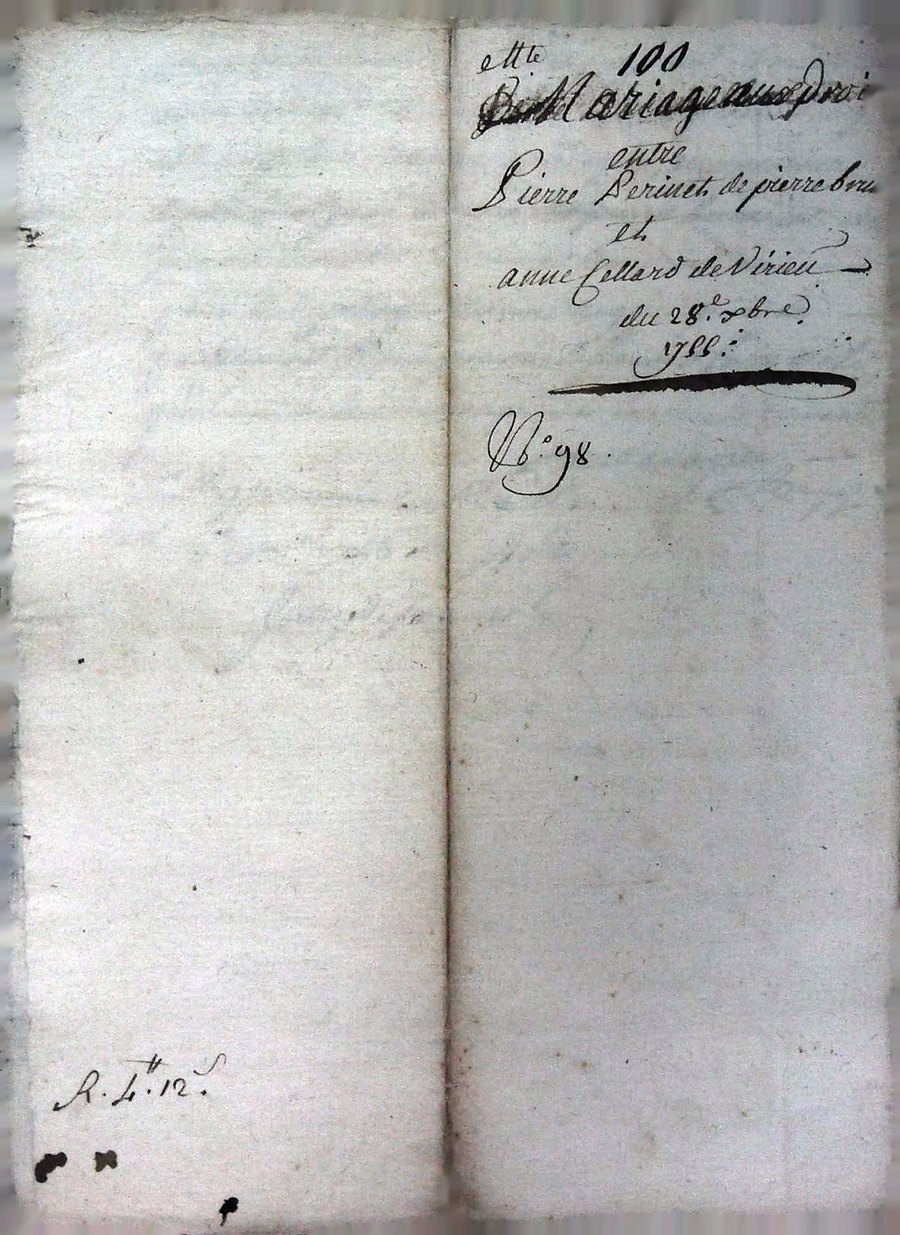 100
Mariage
entre
Pierre Perinet de pierre
et
anne Cellard de Virieu
du 28.e xbre
1755.
N.o 98.
R. 4tt. 12s.